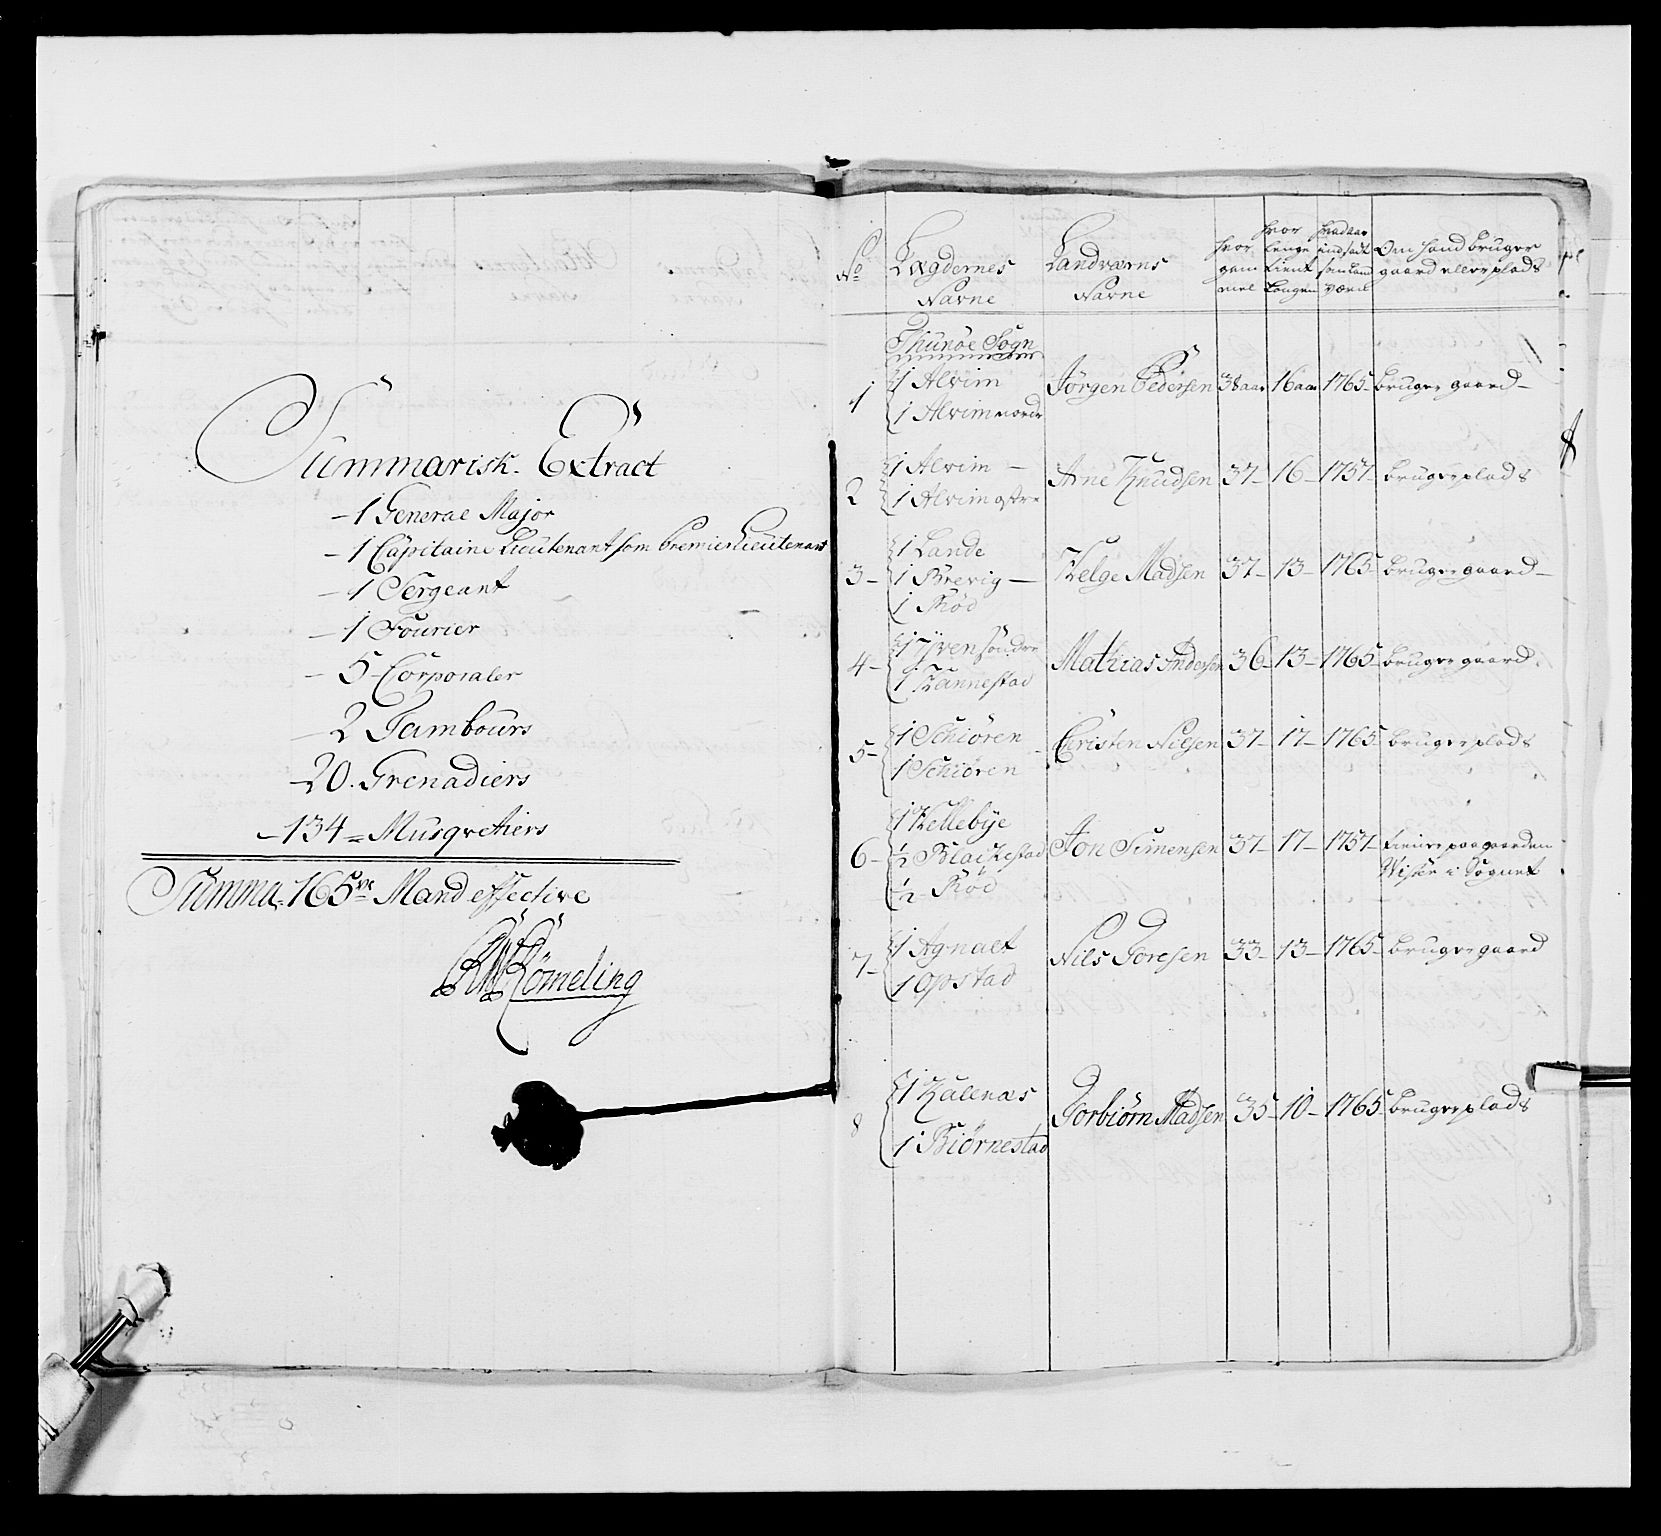 Summarisk Extract
– 1 General Major
– 1 Capitaine Lieutenant som Premier Lieutenant
– 1 Sergeant
– 1 Fourier
– 5 Corporaler
– 2 Tambours
– 20. Grenadiers
– 134 = Musqvetiers
Summa. 165 Mand effective
Römeling
No
Lægdernes Navne
Landværns Navne
hvor gammel
hvor lenge tient Kongen
hvad aar indsadt som Land værn
Om hand bruger gaard eller plads
Thunöe Sogn
1 1 Alvim Jörgen Pedersen 38 aar 16 aar 1765 bruger gaard –
1 Alvim nordr
2 1 Alvim – Arne Knudsen 37– 16– 1757– bruger plads
1 Alvim östre
3– 1 Lande
1 Brevig – Helge Madsen 37– 13– 1765– bruger gaard –
1 Röd
4– 1 Yven söndre Mathias Andersen 36– 13– 1765– bruger gaard
1 Kannestad
5– 1 Schiören Christen Nilsen 37– 17– 1765– bruger plads
1 Schiören
6– 1 Kellebÿe
½ Blackestad Jon Simensen 37– 17– 1757– tiener paa gaarden
½ Röd Wister i Sognet
7– 1 Agnalt Nils Toresen 33– 13– 1765– bruger gaard
1 Opstad
8 1 Kalenæs Torbiörn Madsen 35– 10– 1765– bruger plads
1 Biörnestad